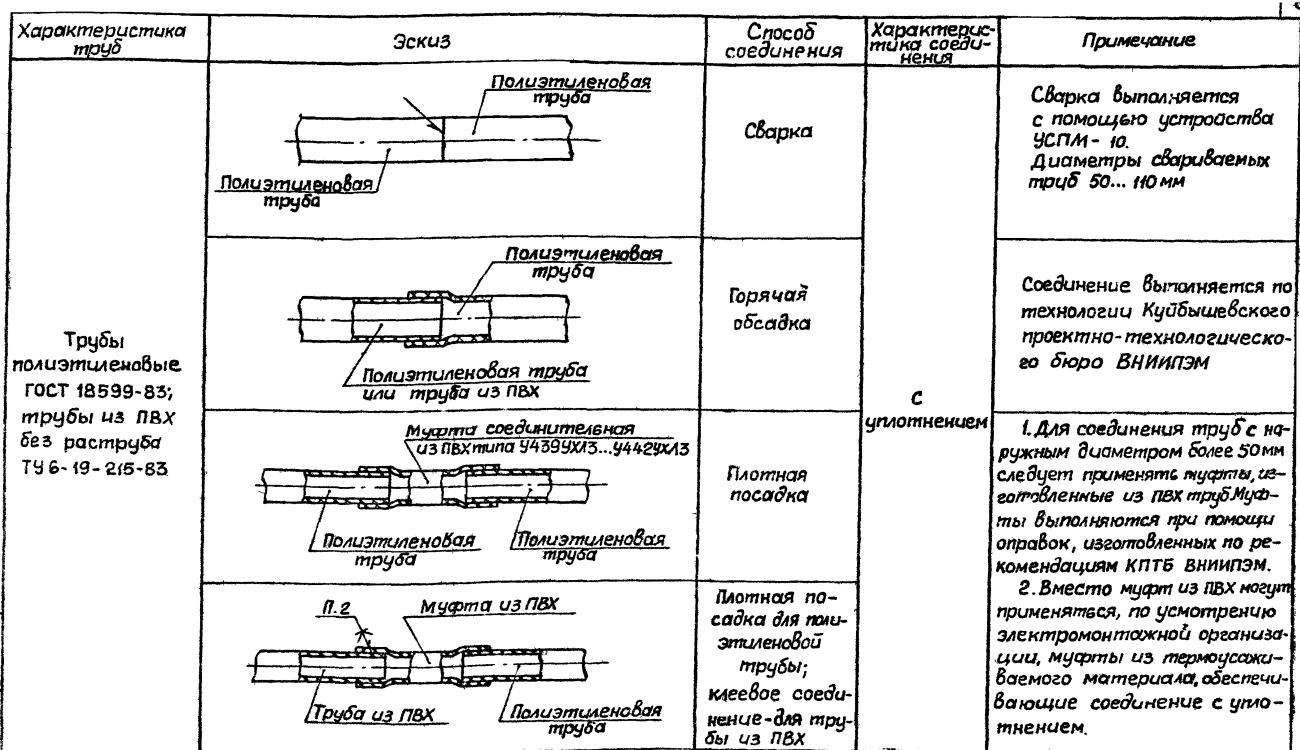 Характеристика
труб
Эскиз
Способ
соединения
Характерис-
тика соеди-
нения
Примечание
Трубы
полиэтиленовые
ГОСТ 18599-83;
трубы из ПВХ
без раструба
ТУ 6-19-215-83
Полиэтиленовая
труба
Полиэтиленовая
труба
Сварка
С
уплотнением
Сварка выполняется
с помощью устройства
УСПМ-10.
Диаметры свариваемых
труб 50... 110 мм
Полиэтиленовая
труба
Полиэтиленовая труба
или труба из ПВХ
Горячая
обсадка
Соединение выполняется по
технологии Куйбышевского
проектно-технологическо-
го бюро ВНИИПЭМ
Муфта соединительная
из ПВХ типа У439УХЛ3...У442УХЛ3
Полиэтиленовая
труба
Полиэтиленовая
труба
Плотная
посадка
1. Для соединения труб с на-
ружным диаметром более 50 мм
следует применять муфты, из-
готовленные из ПВХ труб. Муф-
ты выполняются при помощи
оправок, изготовленных по ре-
комендациям КПТБ ВНИИПЭМ.
2. Вместо муфт из ПВХ могут
применяться, по усмотрению
электромонтажной организа-
ции, муфты из термоусажи-
ваемого материала, обеспечи-
вающие соединение с упло-
тнением.
П.2
Муфта из ПВХ
Труба из ПВХ
Полиэтиленовая
труба
Плотная по-
садка для поли-
этиленовой
трубы;
клеевое соеди-
нение-для тру-
бы из ПВХ